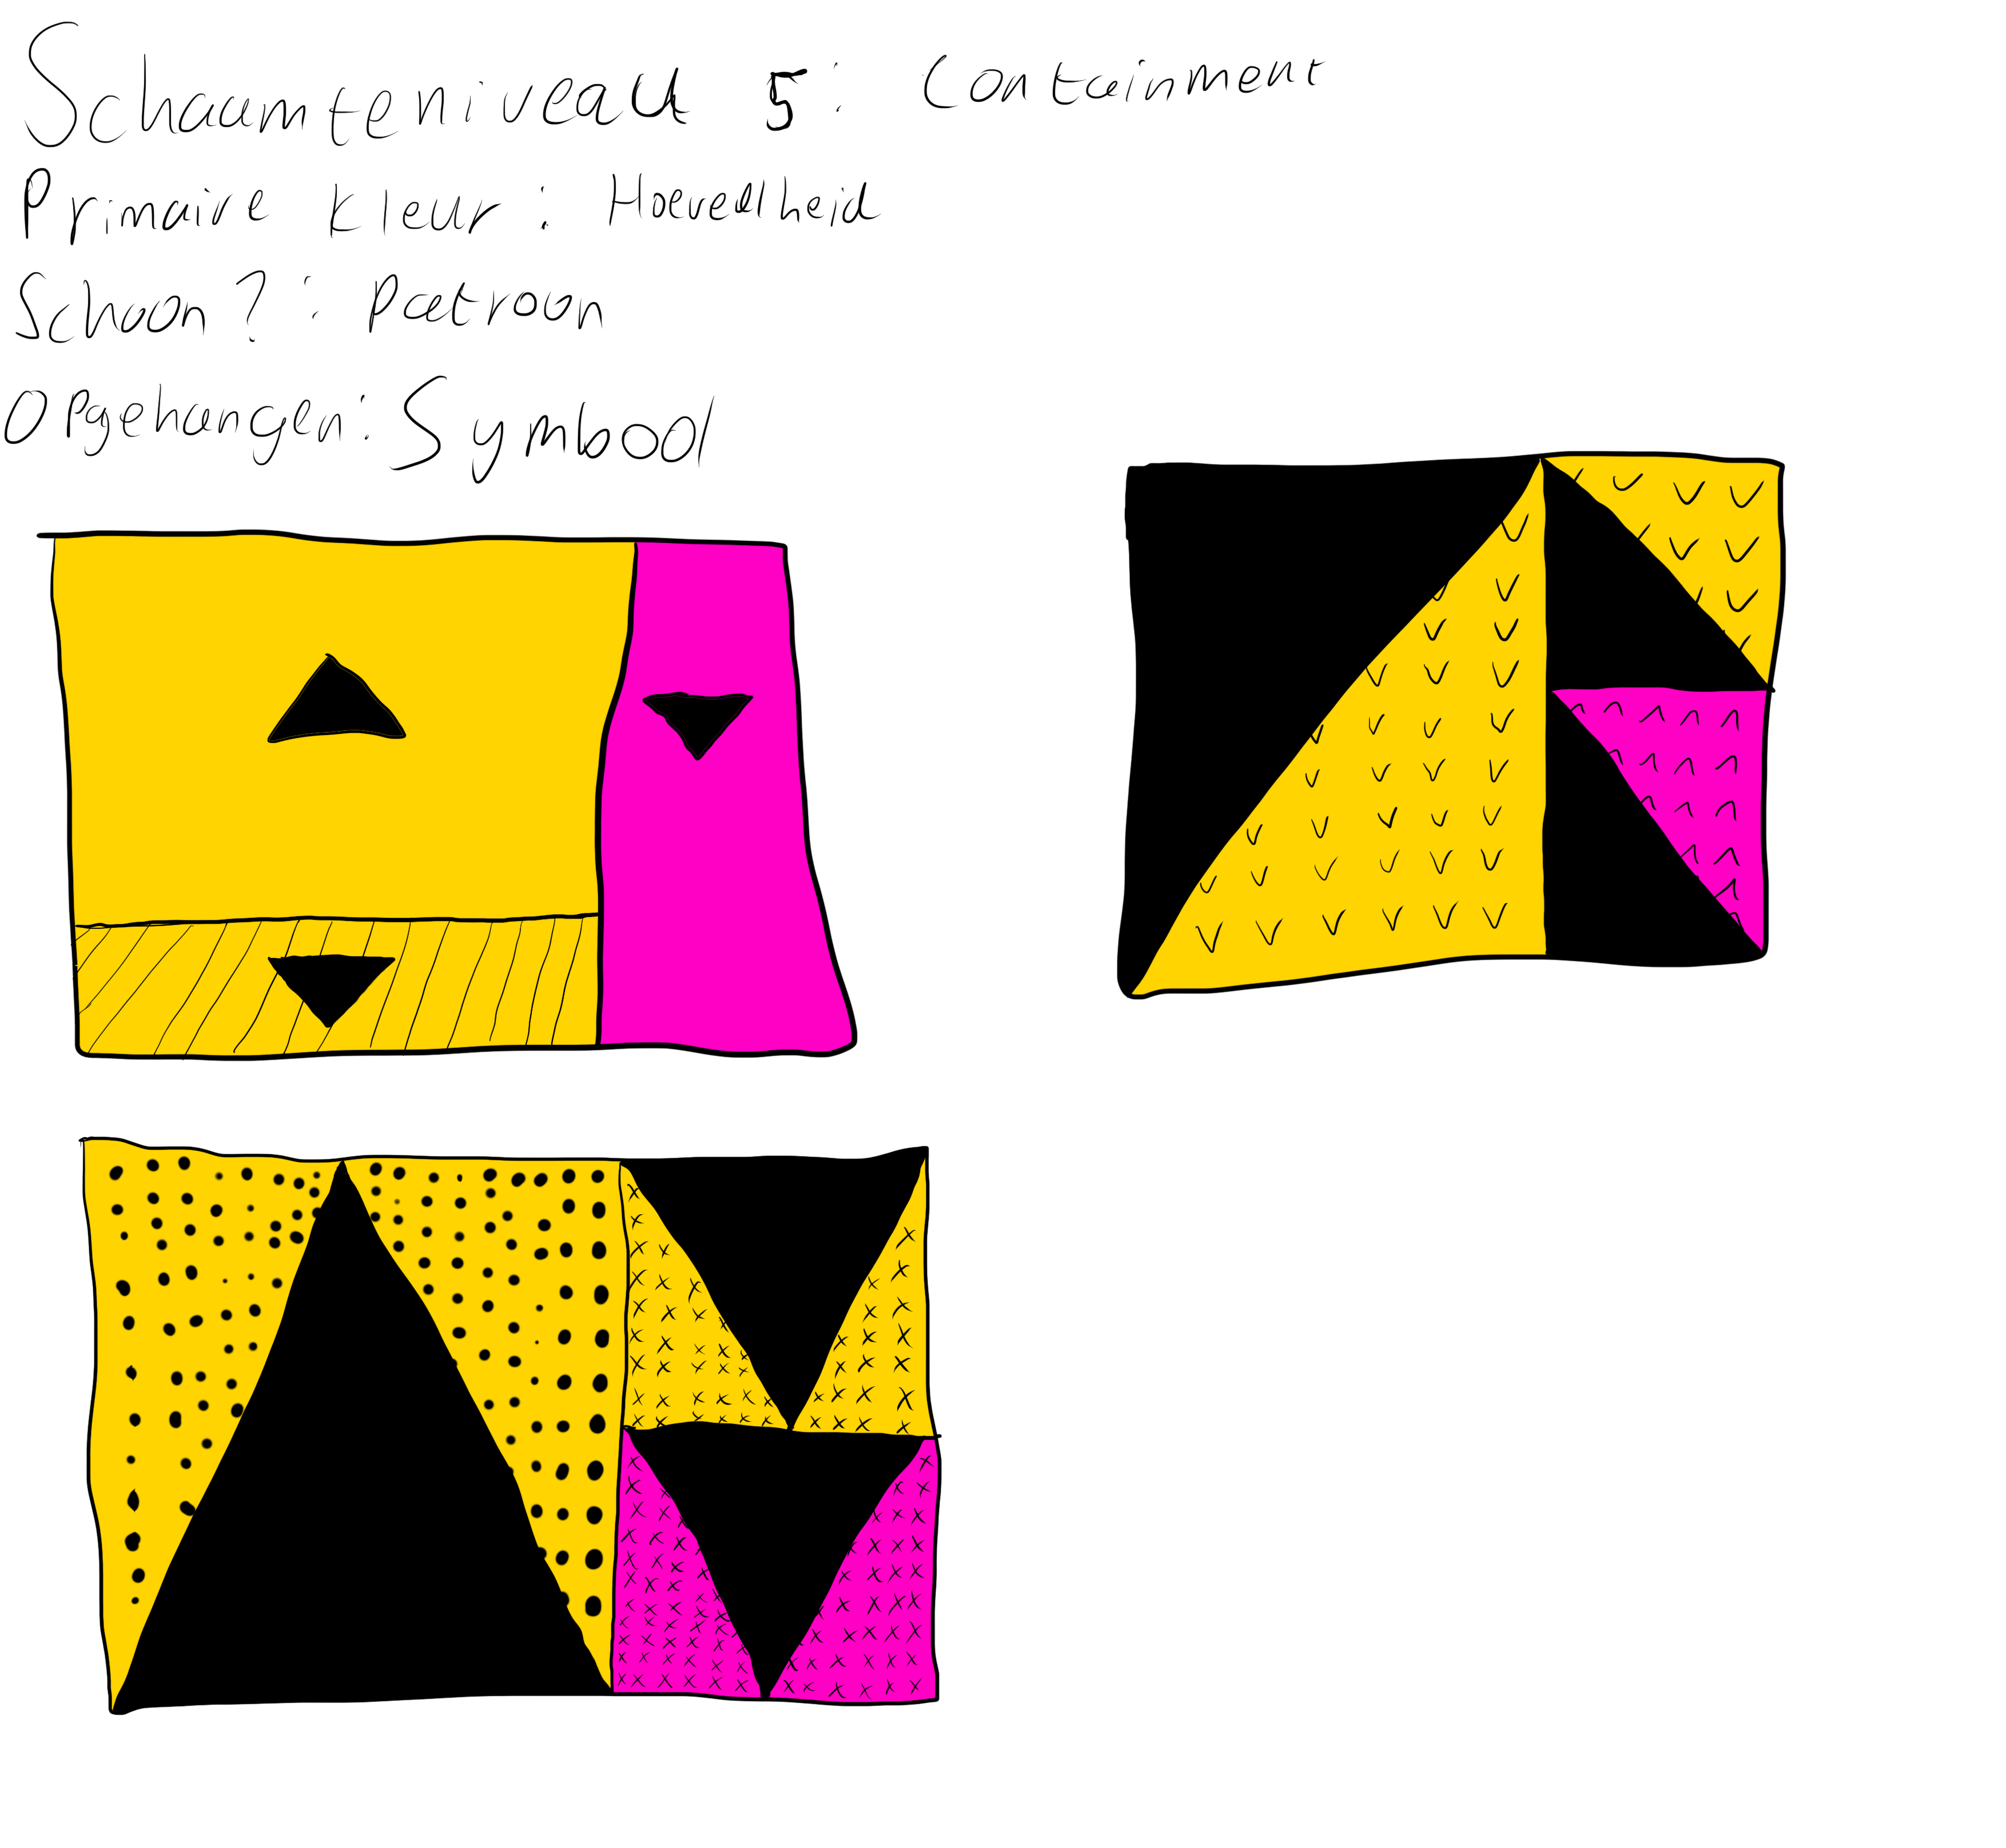 Schaamteniveau 5: Containment
Primaire kleur: Hoeveelheid
Schoon?: Patroon
Opgehangen: Symbool